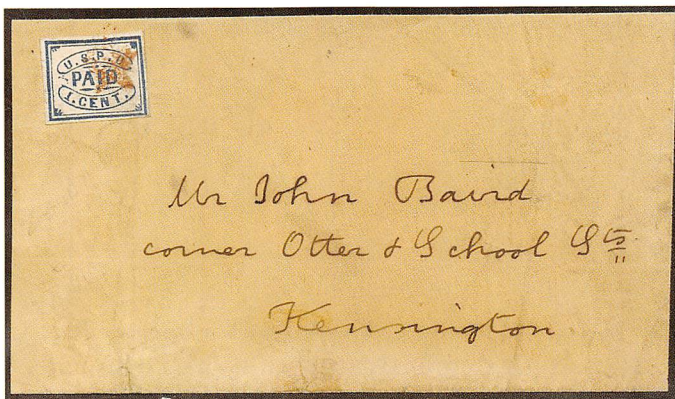 U.S.P.O
PAID
1.CENT.
Mr John Baird
corner Otter & School Sts
Kensington